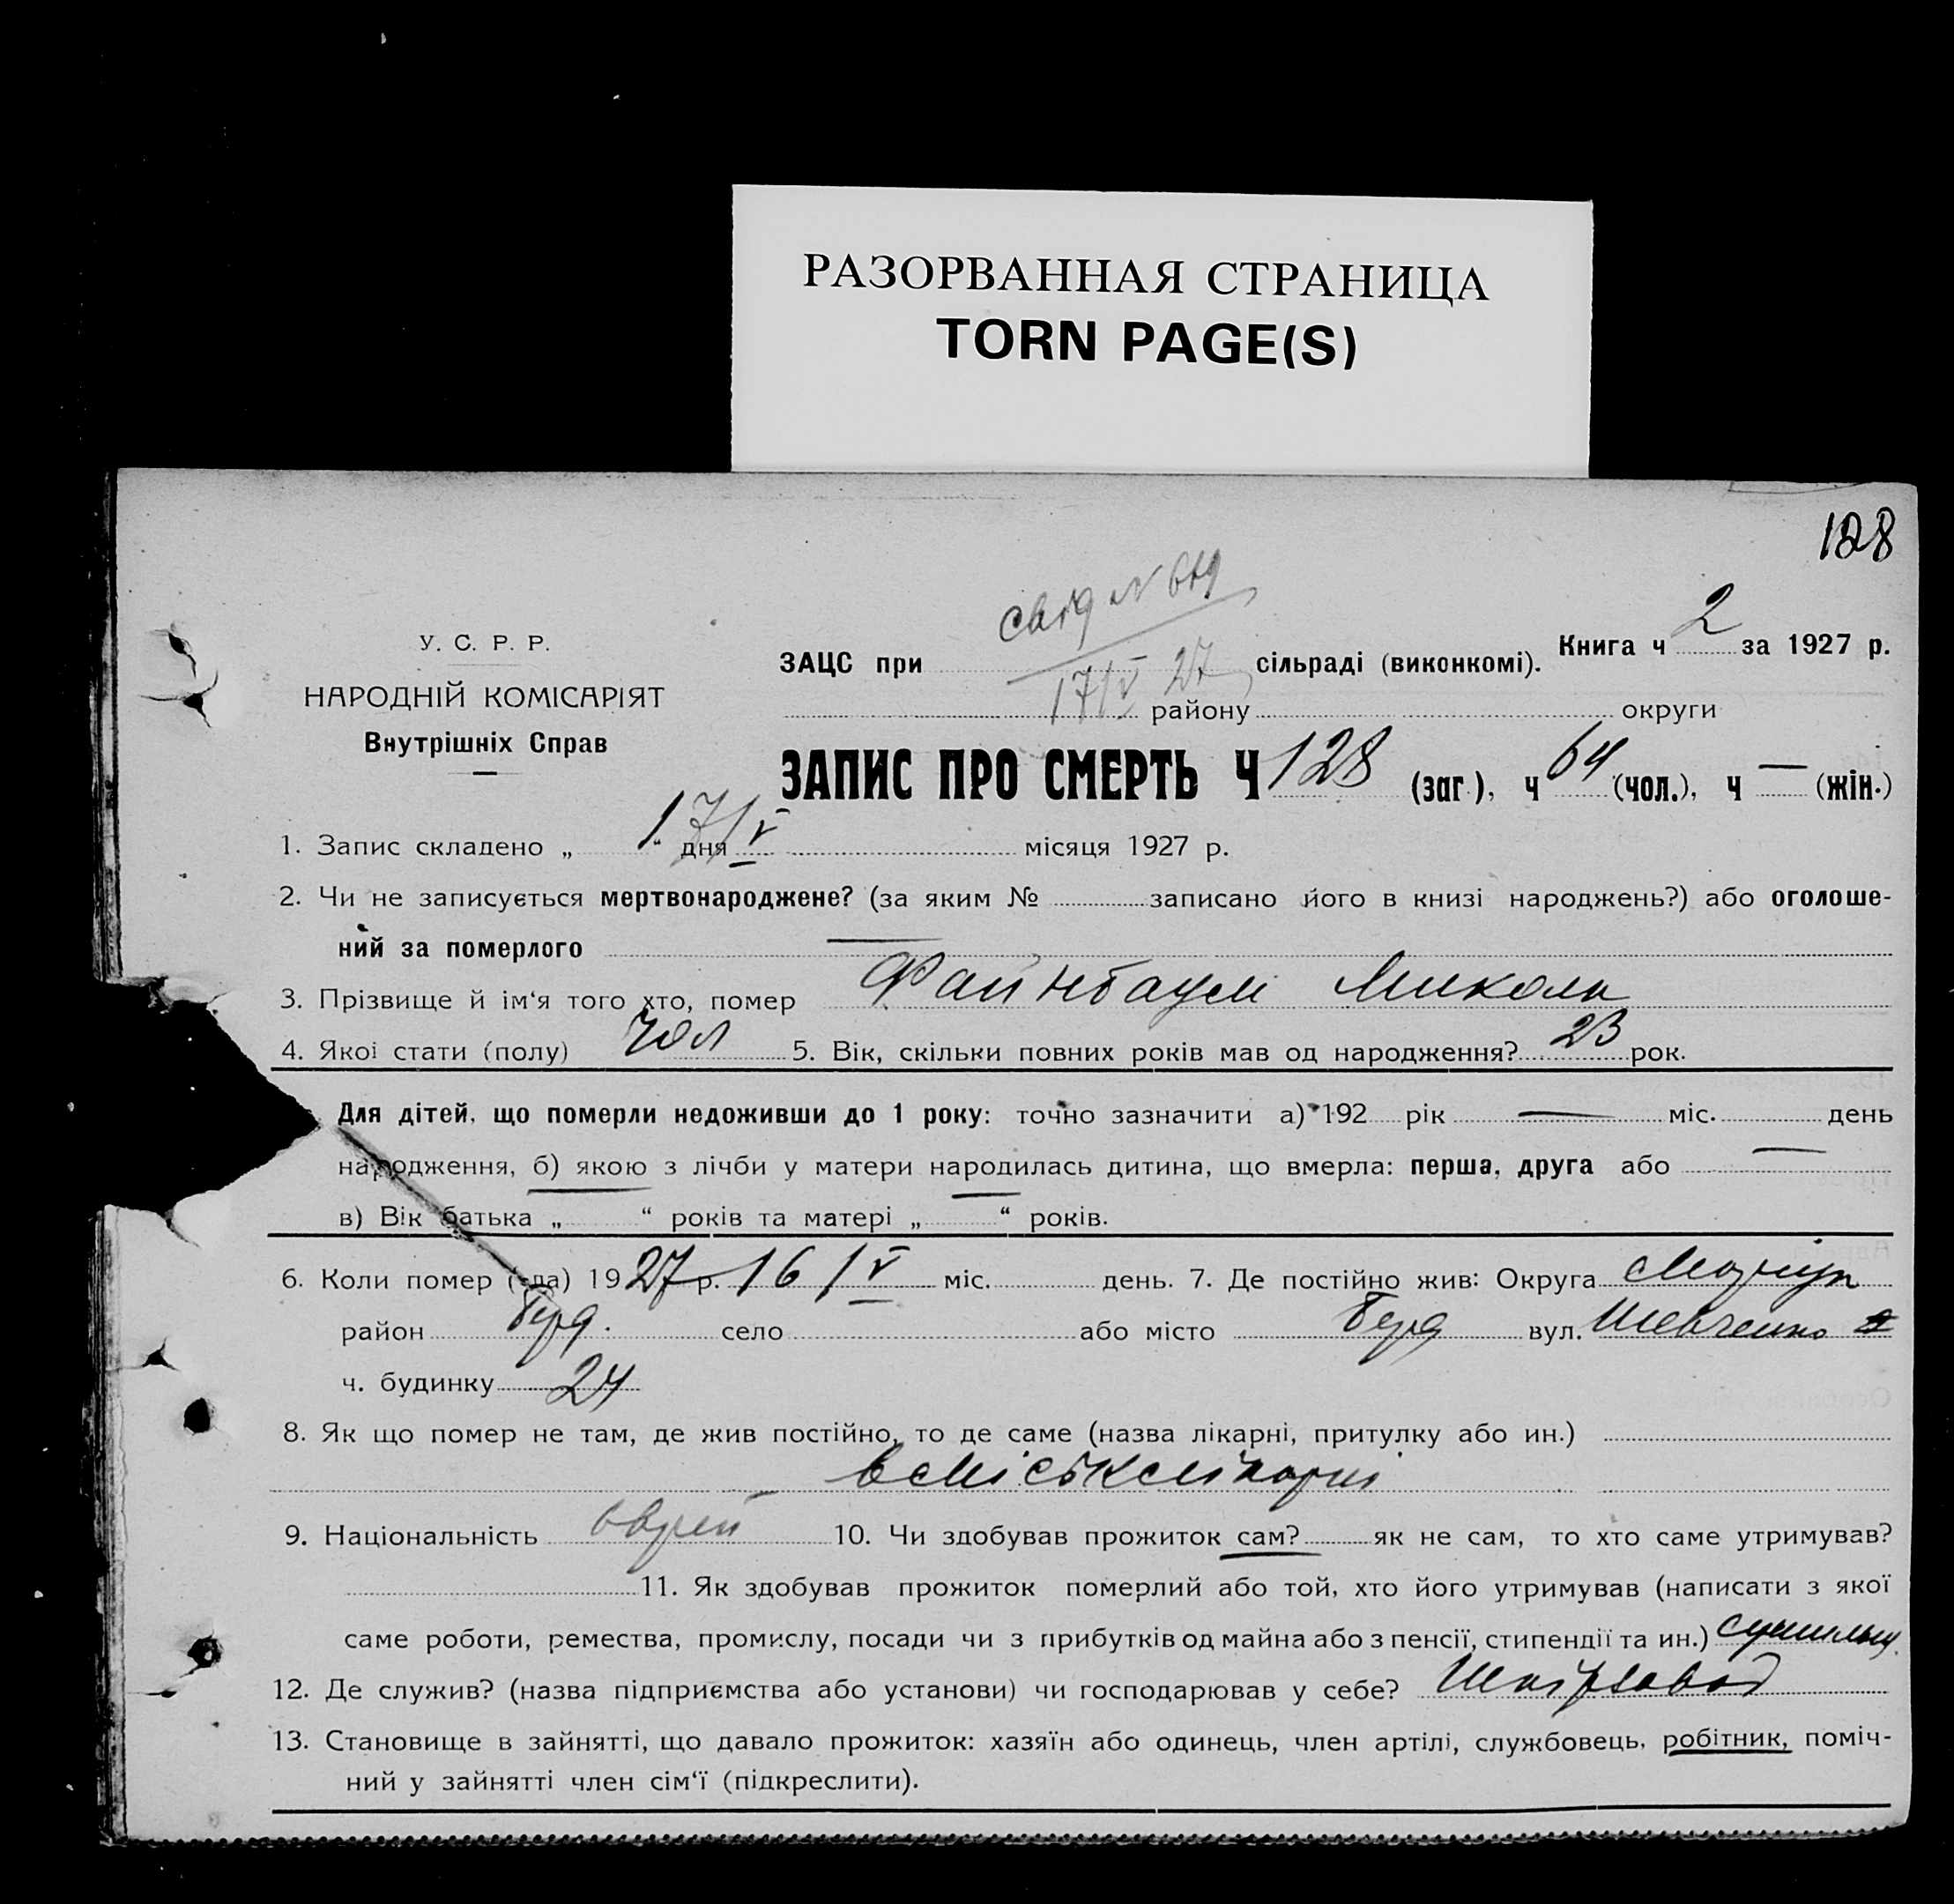 РАЗОРВАННАЯ СТРАНИЦА
TORN PAGE(S)
128
У. С. Р. Р.
НАРОДНІЙ КОМІСАРІЯТ
Внутрішніх Справ
свід N
17/V 27
Книга ч 2 за 1927 р.
ЗАЦС при сільраді (виконкомі).
району округи
ЗАПИС ПРО СМЕРТЬ Ч 128 (заг.), ч 64 (чол.), ч — (жін.)
1. Запис складено „ 17/V “ дня місяця 1927 р.
2. Чи не записується мертвонароджене? (за яким № записано його в книзі народжень?) або оголоше-
ний за померлого —
3. Прізвище й ім‘я того хто, помер Файнбаум Микола
4. Якої стати (полу) чол 5. Вік, скільки повних років мав од народження? 23 рок.
Для дітей, що померли недоживши до 1 року: точно зазначити а) 192 рік — міс. день
народження, б) якою з лічби у матери народилась дитина, що вмерла: перша, друга або —
в) Вік батька „ “ років та матері „ “ років.
6. Коли помер ( -ла) 1927 р. 16/V міс. день. 7. Де постійно жив: Округа
район Берд. село або місто Берд вул. Шевченко
ч. будинку 24
8. Як що помер не там, де жив постійно, то де саме (назва лікарні, притулку або ин.)
в міськлікарні
9. Національність еврей 10. Чи здобував прожиток сам? як не сам, то хто саме утримував?
11. Як здобував прожиток померлий або той, хто його утримував (написати з якої
саме роботи, ремества, промислу, посади чи з прибутків од майна або з пенсії, стипендії та ин.)
12. Де служив? (назва підприємства або установи) чи господарював у себе? Шкірзавод
13. Становище в зайнятті, що давало прожиток: хазяїн або одинець, член артілі, службовець, робітник, поміч-
ний у зайнятті член сім‘ї (підкреслити).